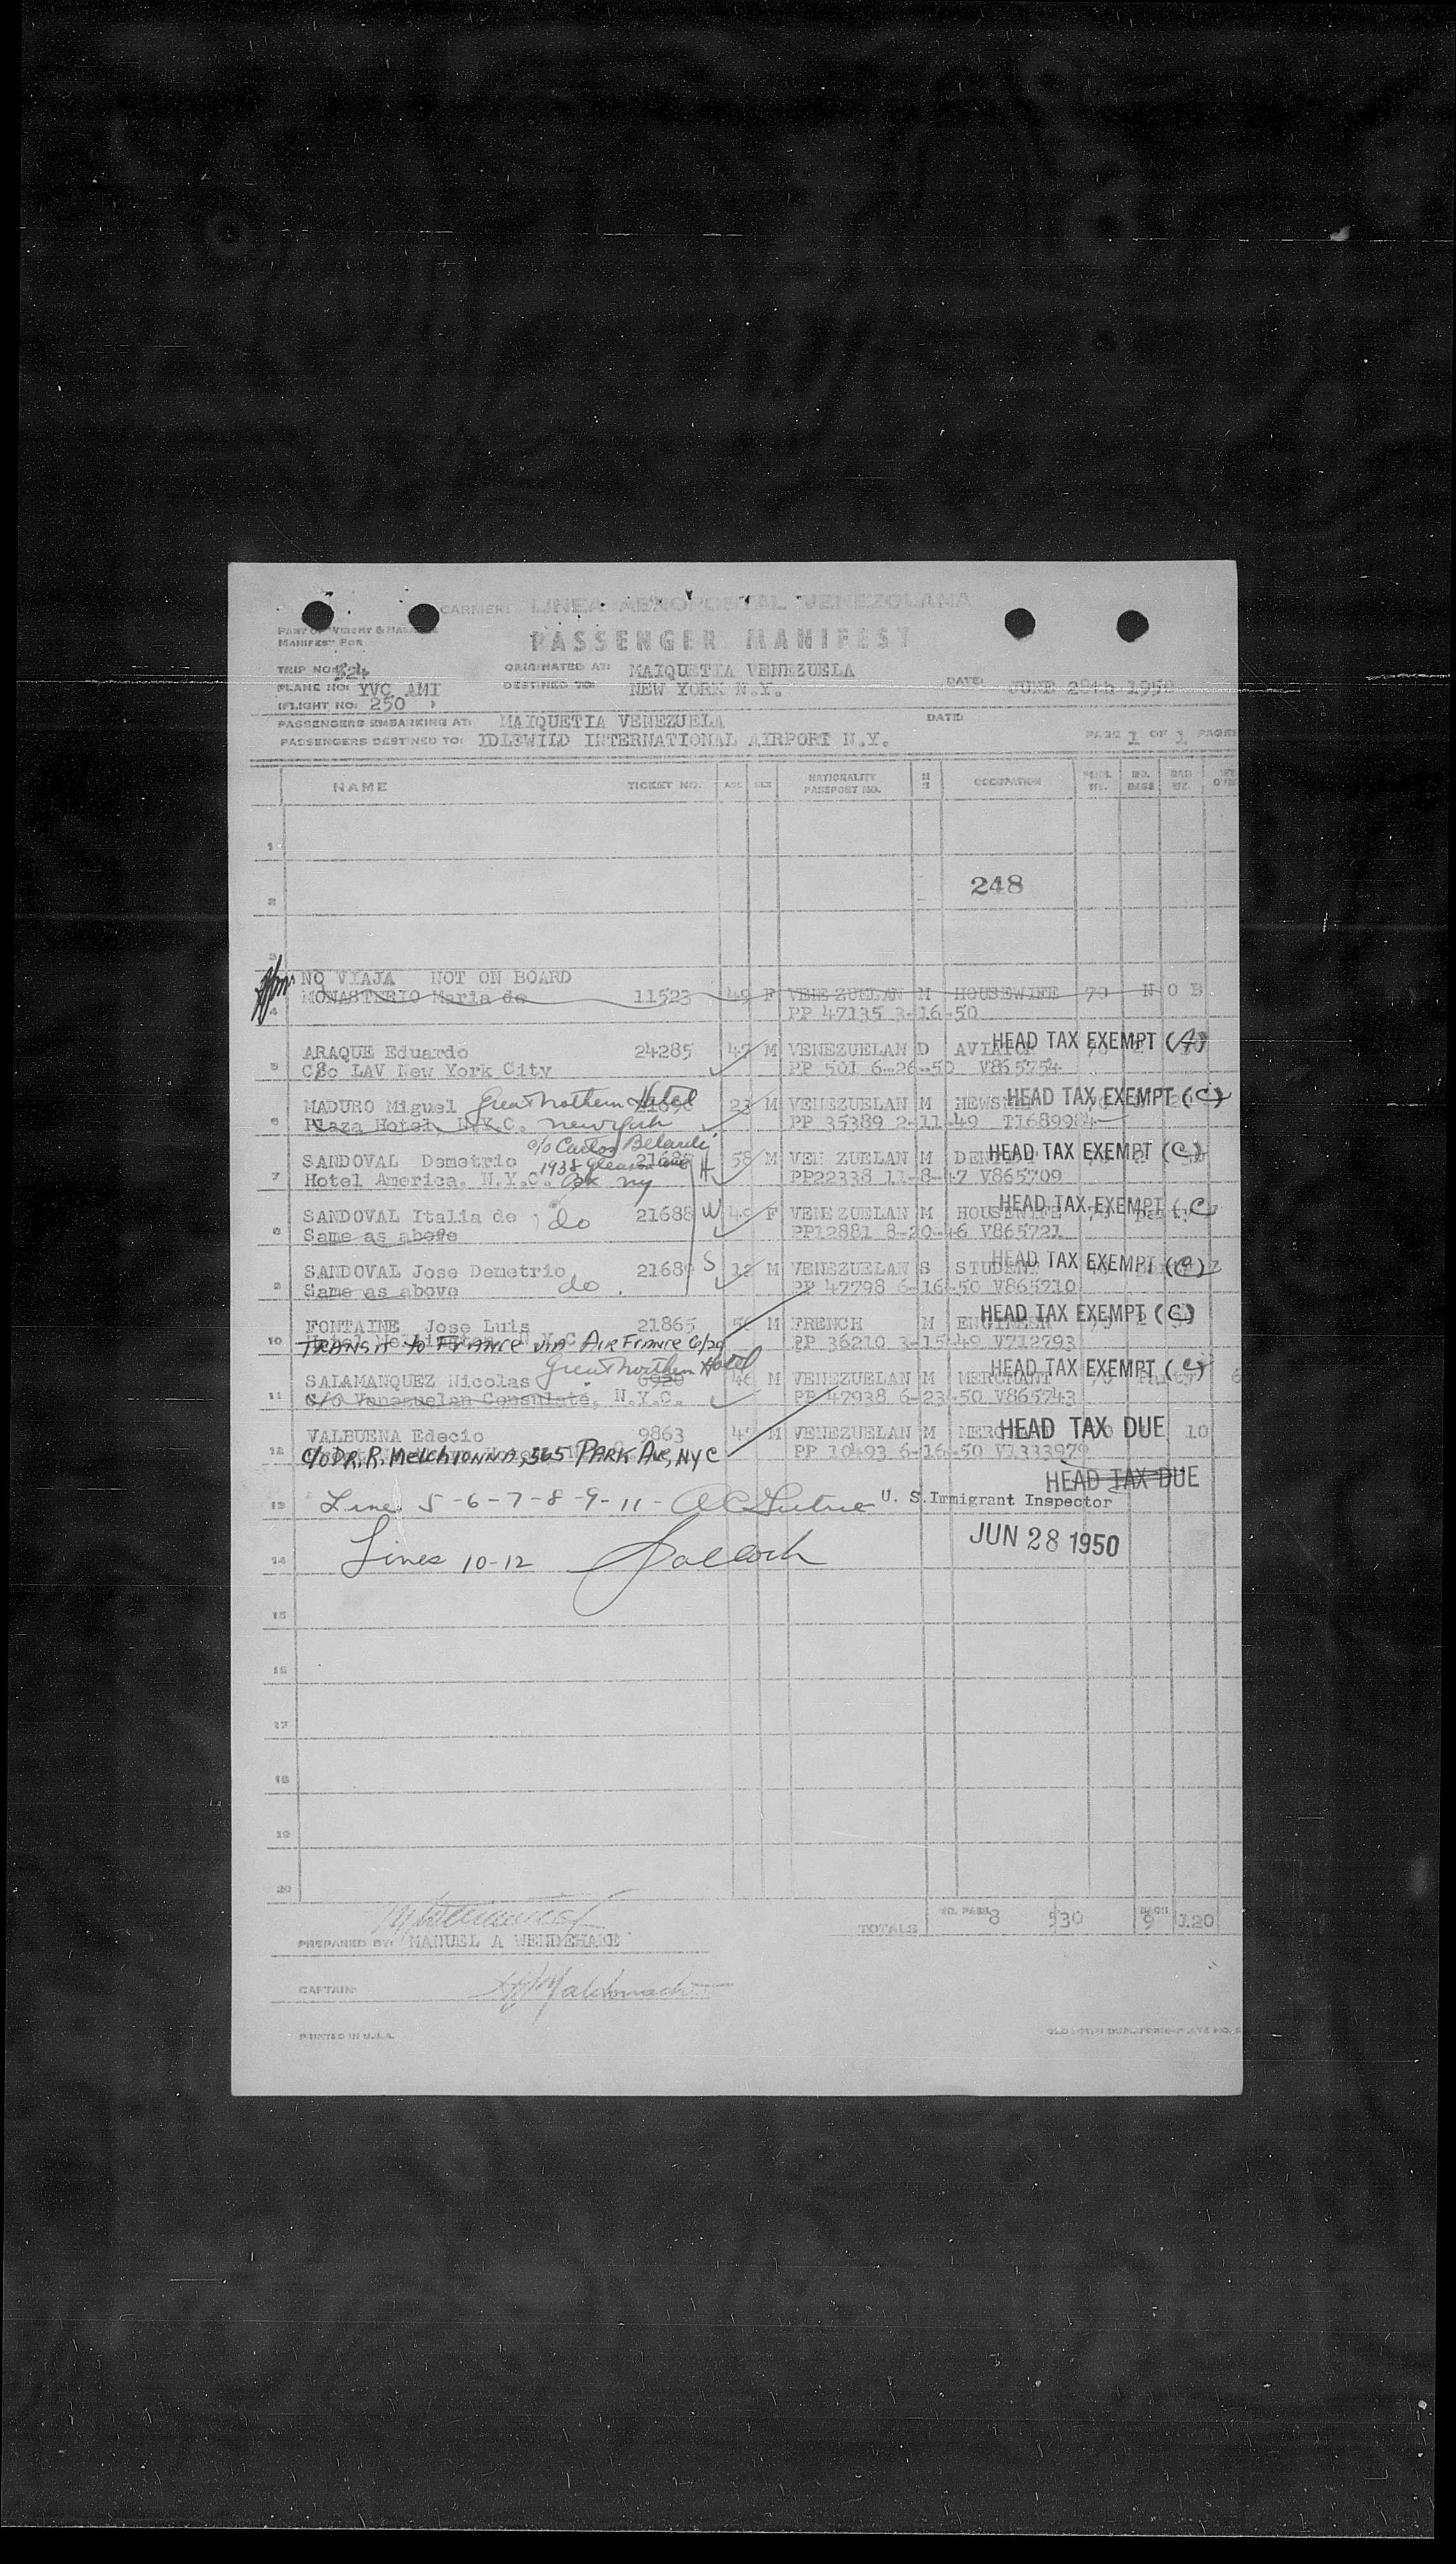 CARRIER: LINEA AEROPOSTAL VENEZOLANA
PART OF WEIGHT &
MANIFEST FOR
PASSENGER MANIFEST
TRIP NO:
ORIGINATED AT: MAIQUETIA VENEZUELA
PLANE NO: YVC AMI
DESTINED TO: NEW YORK N.Y.
DATE: JUNE 28th 1950
(FLIGHT NO: 250 )
PASSENGERS EMBARKING AT: MAIQUETIA VENEZUELA
DATE:
PASSENGERS DESTINED TO: IDLEWILD INTERNATIONAL AIRPORT N.Y.
PAGE 1 OF 1 PAGES
NAME TICKET NO. AGE SEX NATIONALITY PASSPORT NO. OCCUPATION NO. BAGS
1
2 248
3
NO VIAJA NOT ON BOARD
4 MONASTERIO Maria de 11523 49 F VENEZUELAN M HOUSEWIFE 70 N O B
PP 47135 3-16-50
ARAQUE Eduardo 24285 47 M VENEZUELAN D AVIATOR HEAD TAX EXEMPT (A)
5 C/o LAV New York City PP 501 6-26-50 V865754
MADURO Miguel Great Northern Hotel 23 M VENEZUELAN M HEAD TAX EXEMPT (C)
6 Plaza Hotel, N.Y.C. New York PP 35389 2-11-49
c/o Carlos
SANDOVAL Demetrio 21687 58 M VEN ZUELAN M HEAD TAX EXEMPT (C)
1938 Gleason Ave
7 Hotel America, N.Y.C. NY H PP22338 11-8-47 V865709
SANDOVAL Italia de do 21688 W F VENEZUELAN M HOUSEWIFE HEAD TAX EXEMPT (C)
8 Same as above PP12881 8-20-46 V865721
SANDOVAL Jose Demetrio 21689 S 12 M VENEZUELAN S STUDENT HEAD TAX EXEMPT (C)
9 Same as above do. PP 47798 6-16-50 V865710
FONTAINE Jose Luis 21865 M FRENCH M ENGINEER HEAD TAX EXEMPT (C)
10 TRANSIT to FRANCE VIA AIR FRANCE 6/29 PP 36210 3-15-49 V712793
Great Northern Hotel
SALAMANQUEZ Nicolas 6920 46 M VENEZUELAN M MERCHANT HEAD TAX EXEMPT (C)
11 c/o Venezuelan Consulate, N.Y.C. PP 47938 6-23-50 V865743
VALBUENA Edecio 9863 47 M VENEZUELAN M HEAD TAX DUE 10
12 c/o DR. R. MELCHIONNA, 565 PARK Ave, NYC PP 10493 6-16-50 V1333979
HEAD TAX DUE
13 Line 5-6-7-8-9-11- U. S. Immigrant Inspector
14 Lines 10-12 JUN 28 1950
15
16
17
18
19
20
TOTALS NO. PASS. 8 530 9 120
PREPARED BY: MANUEL A WENDEHAKE
CAPTAIN:
PRINTED IN U.S.A.